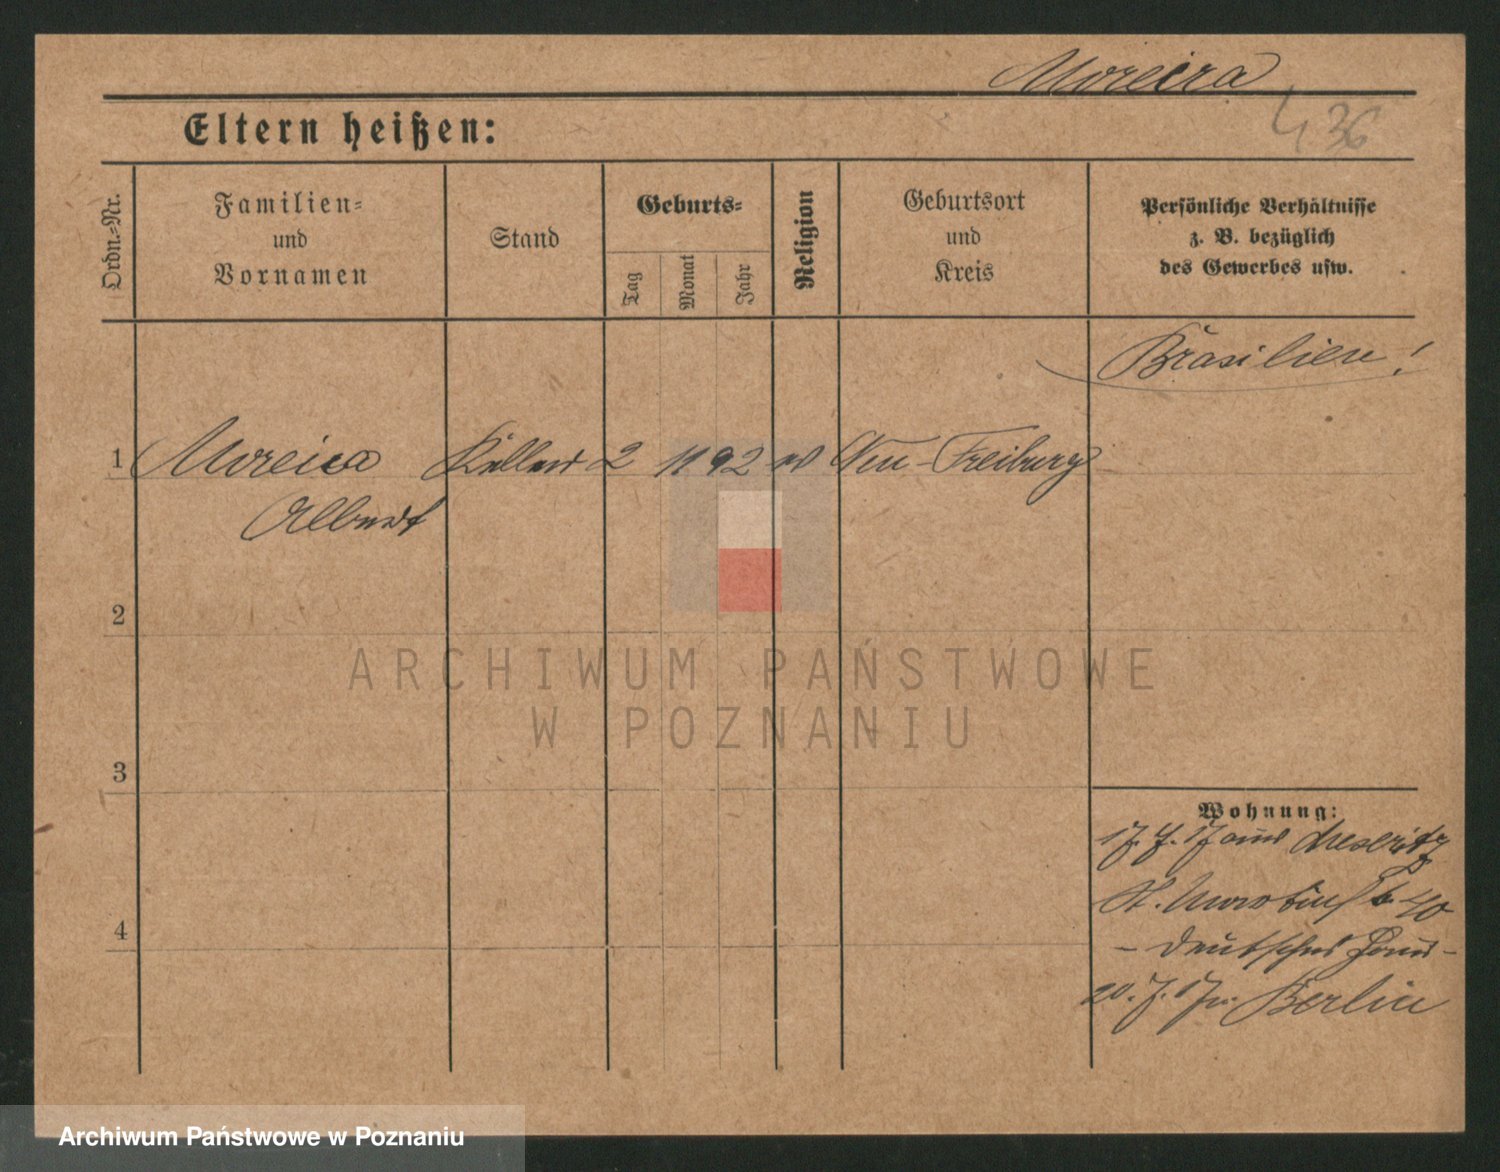 Moreira
436
Eltern heißen:
Ordn.-Nr.
Familien-
und
Vornamen
Stand
Geburts-
Tag
Monat
Jahr
Religion
Geburtsort
und
Kreis
Persönliche Verhältnisse
z. B. bezüglich
des Gewerbes usw.
Brasilien!
1 Moreira Kellner 2 11 92 ev Neu-Freiburg
Albert
2
3
4
Wohnung:
17. 7. 17 aus Meseritz
St. Martinstr. 40
- Deutsches Haus -
20. 7. 17 n. Berlin
ARCHIWUM PAŃSTWOWE
W POZNANIU
Archiwum Państwowe w Poznaniu